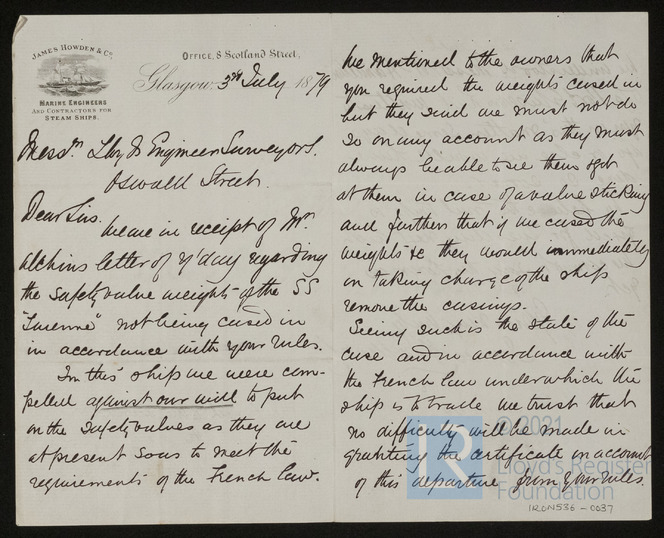 JAMES HOWDEN & Co.
MARINE ENGINEERS
AND CONTRACTORS FOR
STEAM SHIPS.
OFFICE, 8 Scotland Street,
Glasgow 3rd July 1879
Messrs Lloyds Engineer Surveyors.
Oswald Street.
Dear Sirs.
We are in receipt of Mr.
Alchins letter of y'day regarding
the safety valve weights of the SS
not being cased in
in accordance with your rules.
In this ship we were com-
pelled against our will to put
on the safety valves as they are
at present so as to meet the
requirements of the French law.
We mentioned to the owners that
you required the weights cased in
but they said we must not do
so on any account as they must
always be able to see them & get
at them in case of a valve sticking
and further that if we cased the
weights &c they would immediately
on taking charge of the ship
remove the casings.
Seeing such is the state of the
case and in accordance with
the French law under which the
ship is to trade we trust that
no difficulty will be made in
granting the certificate on account
of this departure from your rules.
© 2021
LR
Lloyd's Register
Foundation
IRON536-0037